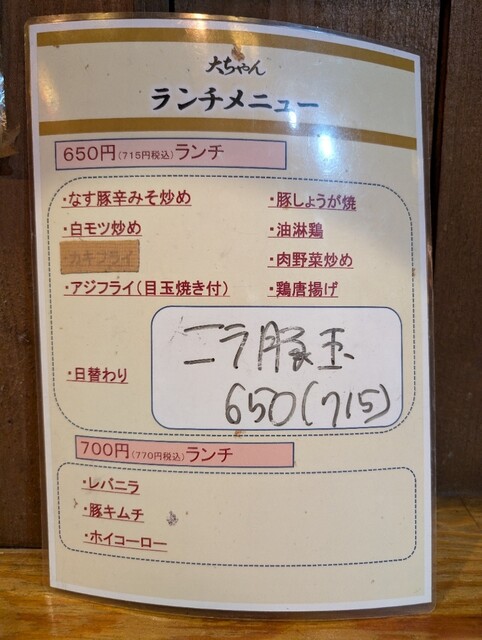 大ちゃん
ランチメニュー
650円(715円税込)ランチ
・なす豚辛みそ炒め
・豚しょうが焼
・白モツ炒め
・油淋鶏
カキフライ
・肉野菜炒め
・アジフライ(目玉焼き付)
・鶏唐揚げ
・日替わり
ニラ豚玉
650(715)
700円(770円税込)ランチ
・レバニラ
・豚キムチ
・ホイコーロー